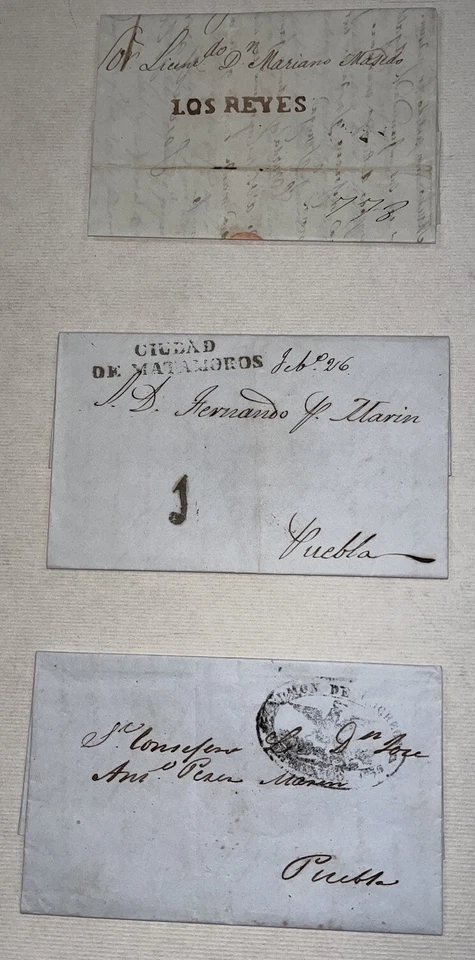 Sr Licendo Dn Mariano Macedo
LOS REYES
778
CIUDAD
DE MATAMOROS
Febo. 26
S. D. Fernando P. Marin
1
Puebla
DE
Sr Consejero Dn Jose
Anto Perez Marin
Puebla